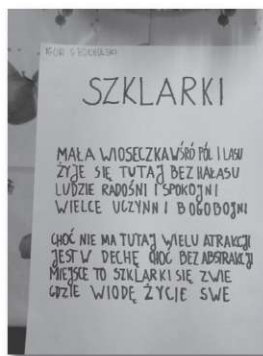 IGOR GROCHOLSKI
SZKLARKI
MAŁA WIOSECZKA WŚRÓ PÓL I LASU
ŻYJE SIĘ TUTAJ BEZ HAŁASU
LUDZIE RADOŚNI I SPOKOJNI
WIELCE UCZYNNI I BOGOBOJNI
CHOĆ NIE MA TUTAJ WIELU ATRAKCJI
JEST W DECHĘ CHOĆ BEZ ABSTRAKCJI
MIEJSCE TO SZKLARKI SIĘ ZWIE
GDZIE WIODĘ ŻYCIE SWE